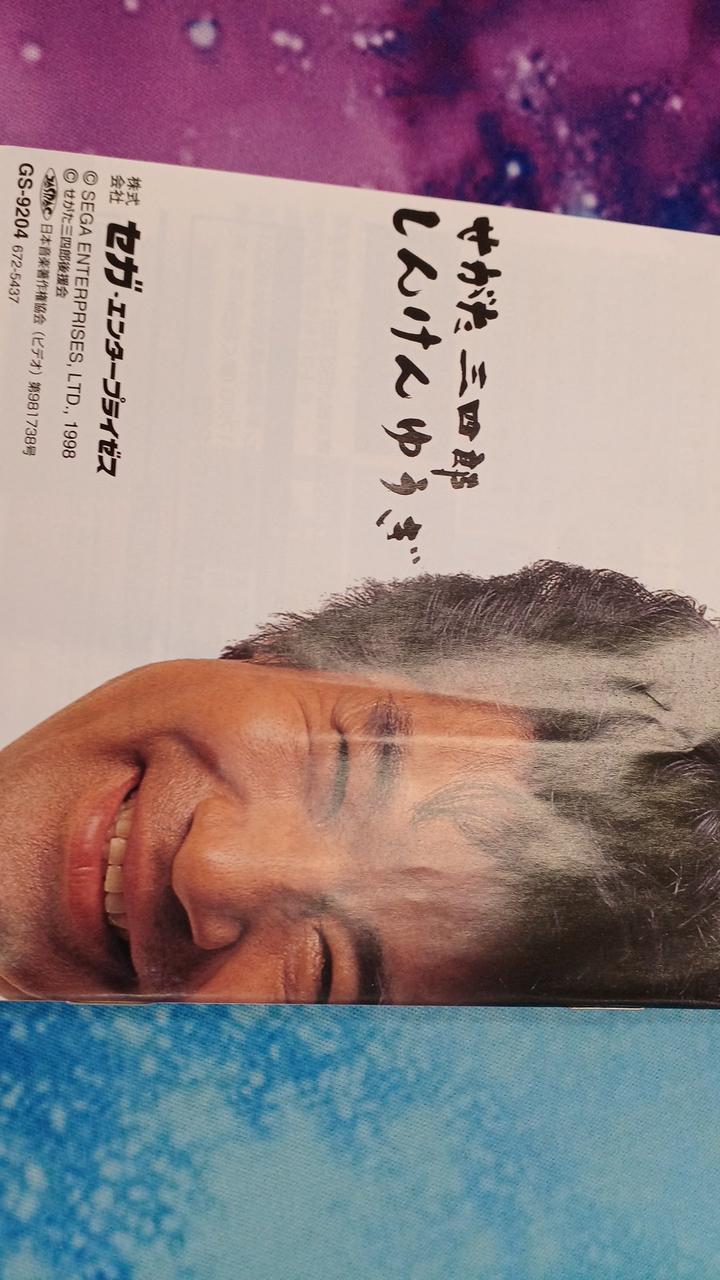 せがた三四郎
しんけんゆうぎ
株式会社 セガ・エンタープライゼス
© SEGA ENTERPRISES, LTD., 1998
© せがた三四郎後援会
JASRAC 日本音楽著作権協会（ビデオ）第981738号
GS-9204 672-5437